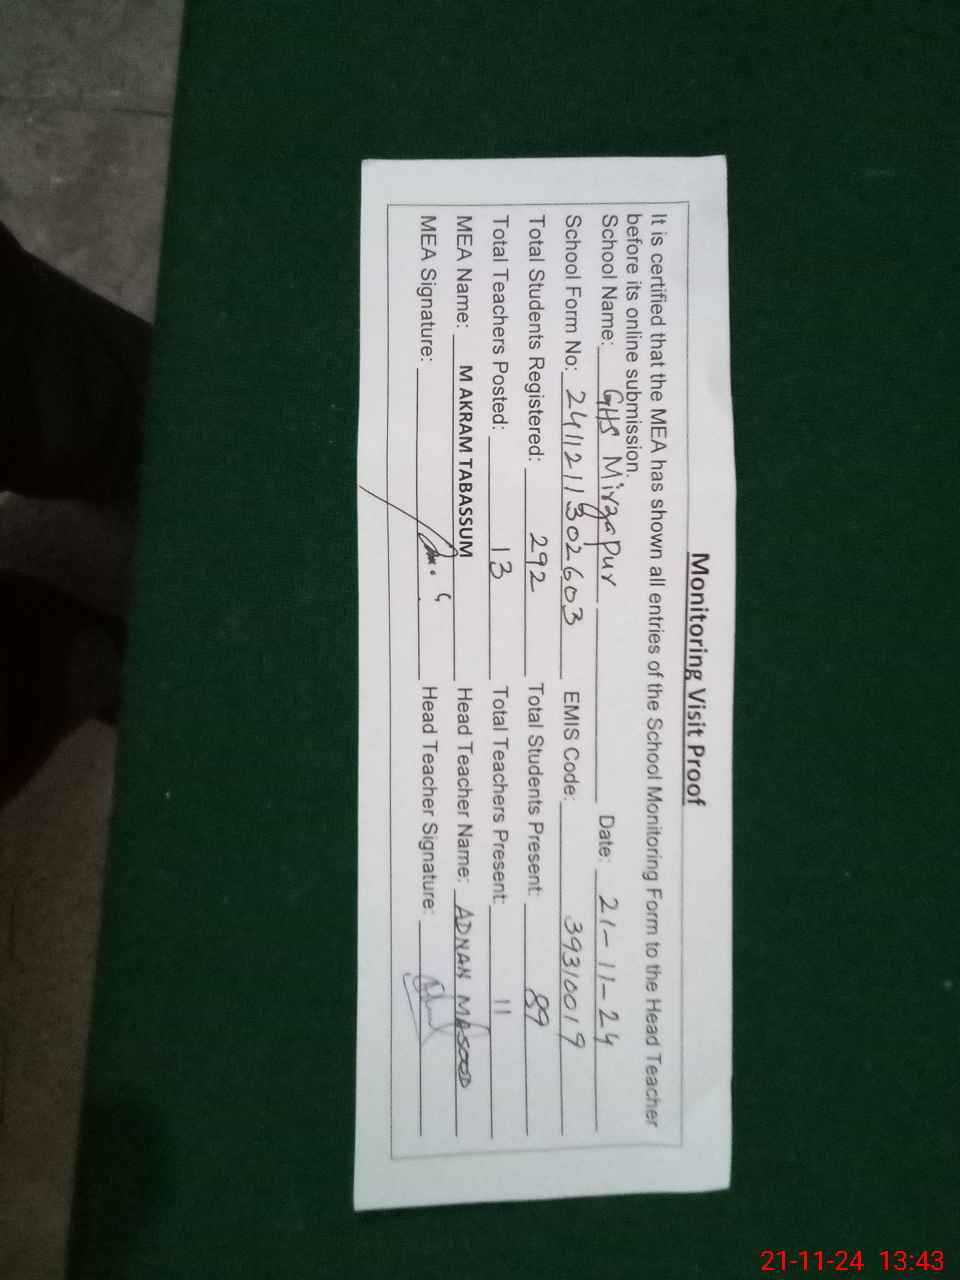 Monitoring Visit Proof
It is certified that the MEA has shown all entries of the School Monitoring Form to the Head Teacher
before its online submission.
School Name: GHS Mirza Pur Date: 21-11-24
School Form No: 2411211302603 EMIS Code: 39310019
Total Students Registered: 292 Total Students Present: 89
Total Teachers Posted: 13 Total Teachers Present: 11
MEA Name: M AKRAM TABASSUM Head Teacher Name: ADNAN MASOOD
MEA Signature: Head Teacher Signature:
21-11-24 13:43